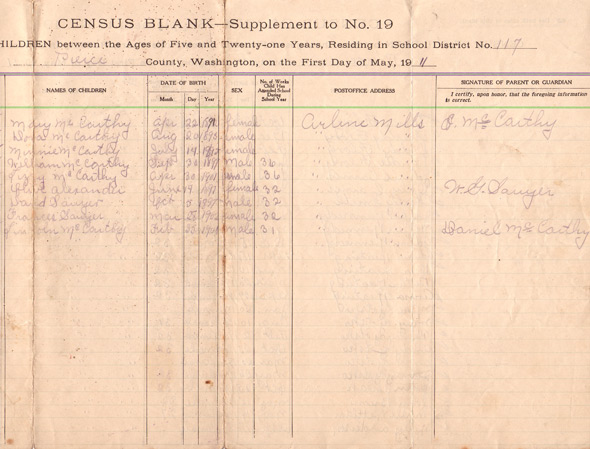 CENSUS BLANK—Supplement to No. 19
HILDREN between the Ages of Five and Twenty-one Years, Residing in School District No. 117
Pierce County, Washington, on the First Day of May, 19 11
NAMES OF CHILDREN DATE OF BIRTH SEX No. of Weeks Child Has Attended School During School Year POSTOFFICE ADDRESS SIGNATURE OF PARENT OR GUARDIAN
Month Day Year I certify, upon honor, that the foregoing information is correct.
Mary McCarthy Apr 22 female Arline Mills McCarthy
McCarthy Aug 20 female
Minnie McCarthy July 14 female
William McCarthy Sept 30 Male 36
McCarthy Apr 30 female 36
Alexander June 14 female 32 W. G. Sawyer
Sawyer Oct 5 male 32
Frances Sawyer Mar female 32
McCarthy Feb male 31 Daniel McCarthy